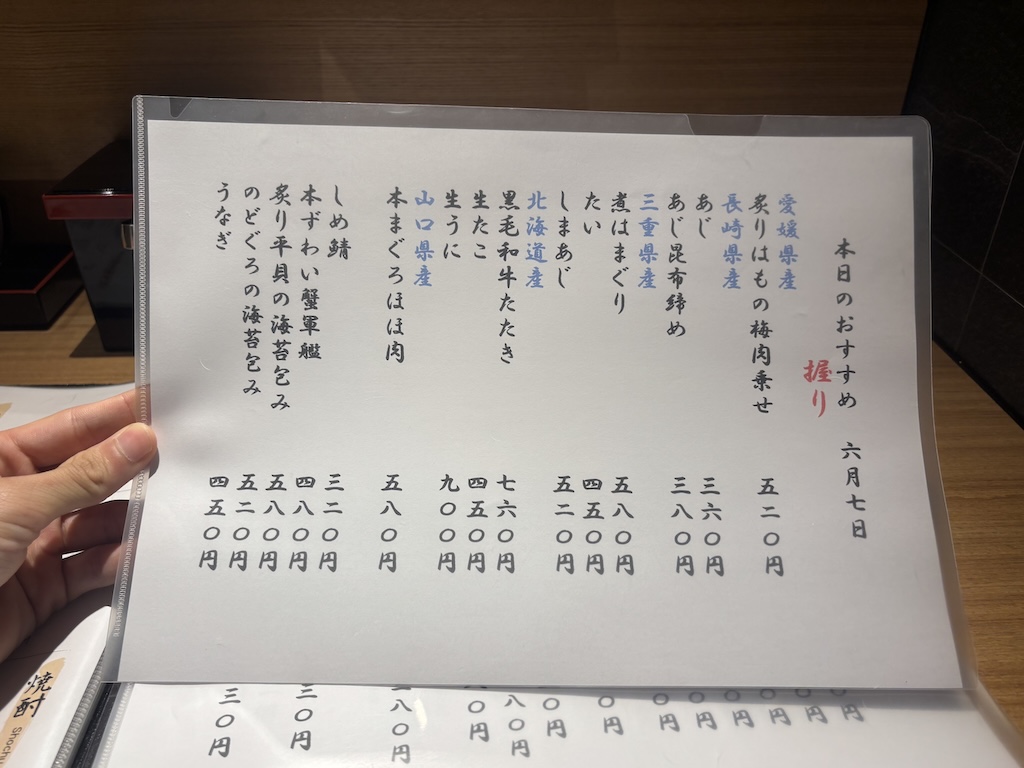 本日のおすすめ 六月七日
握り
愛媛県産
炙りはもの梅肉乗せ 五二〇円
長崎県産
あじ 三六〇円
あじ昆布締め 三八〇円
三重県産
煮はまぐり 五八〇円
たい 四五〇円
しまあじ 五二〇円
北海道産
黒毛和牛たたき 七六〇円
生たこ 四五〇円
生うに 九〇〇円
山口県産
本まぐろほほ肉 五八〇円
しめ鯖 三二〇円
本ずわい蟹軍艦 四八〇円
炙り平貝の海苔包み 五八〇円
のどぐろの海苔包み 五二〇円
うなぎ 四五〇円
焼酎
Shochu
八〇円
〇円
八〇円
三〇円
三〇円